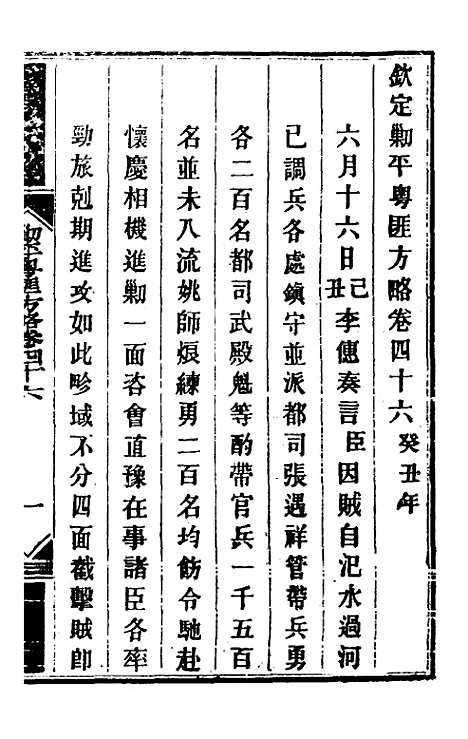 欽定勦平粵匪方略卷四十六癸丑年
六月十六日己丑李僡奏言臣因賊自汜水過河
已調兵各處鎮守並派都司張遇祥管帶兵勇
各二百名都司武殿魁等酌帶官兵一千五百
名並未入流姚師煾練勇二百名均飭令馳赴
懷慶相機進勦一面咨會直豫在事諸臣各率
勁旅剋期進攻如此畛域不分四面截擊賊卽
勦平粵匪方略卷四十六
一